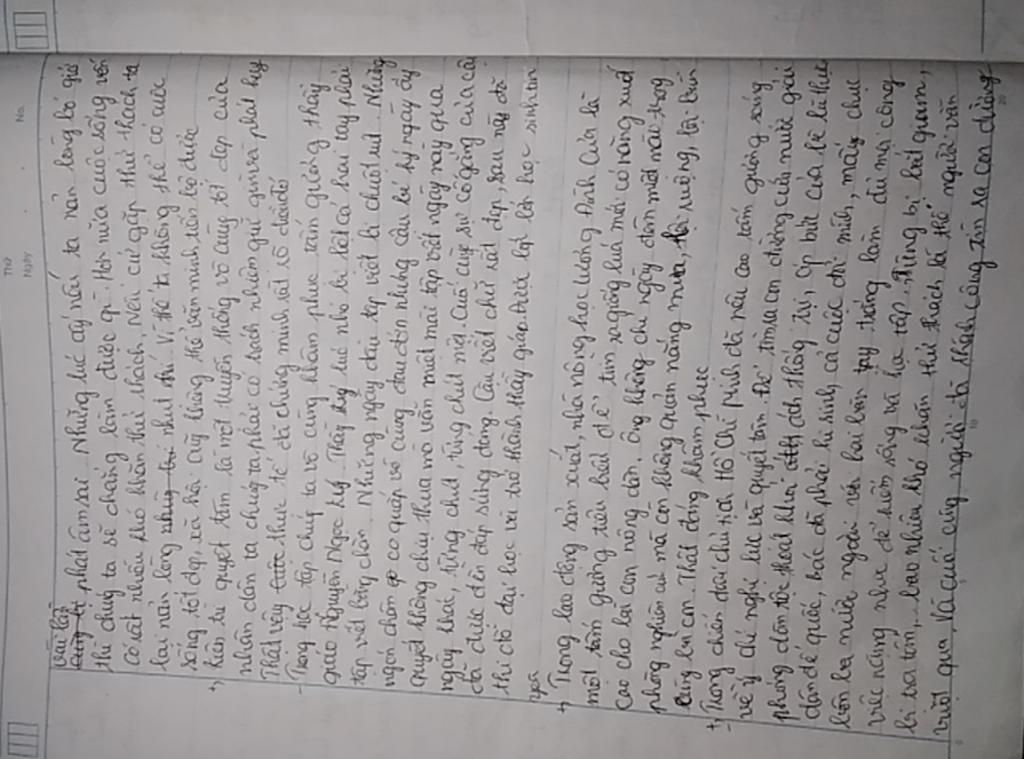 Thứ
Ngày
No.
Vấp lặp phát âm sai. Những lúc ấy nếu ta nản lòng bỏ giở
thì chúng ta sẽ chẳng làm được gì. Hơn nữa cuộc sống vốn
có rất nhiều khó khăn thử thách, Nếu cứ gặp thử thách ta
lại nản lòng nhụt chí Vì thế ta không thể có cuộc
sống, tốt đẹp, xã hội cũng không thể văn minh, tiến bộ được
+) hiện tại quyết tâm là một truyền thống vô cùng tốt đẹp của
nhân dân ta chúng ta phải có trách nhiệm giữ gìn và phát huy
Thật vậy thực tế đã chứng minh rất rõ điều đó
- Trong học tập chúng ta vô cùng khâm phục tấm gương thầy
giáo Nguyễn Ngọc Ký. Thầy ký lúc nhỏ bị liệt cả hai tay phải
tập viết bằng chân. Những ngày đầu tập viết bị chuột rút. Những
ngón chân co quắp vô cùng đau đớn nhưng cậu bé ký ngày ấy
quyết không chịu thua nó vẫn miệt mài tập viết ngày này qua
ngày khác, từng chút, từng chút một. Cuối cùng sự cố gắng của cậu
đã được đền đáp xứng đáng. Cậu viết chữ rất đẹp, sau này đỗ
thi đỗ đại học và trở thành thầy giáo
nữa
+) Trong lao động sản xuất, nhà nông học Lương Định Của là
một tấm gương tiêu biểu để tìm ra giống lúa mới có năng xuất
cao cho bà con nông dân. Ông không chỉ ngày đêm miệt mài trong
phòng nghiên cứu mà còn không quản nắng mưa, lội ruộng, lội bùn
cùng bà con. Thật đáng khâm phục
+) Trong chiến đấu chủ tịch Hồ Chí Minh đã nêu cao tấm gương sáng
- về ý chí nghị lực và quyết tâm. Để tìm ra con đường cứu nước giải
phóng dân tộc thoát khỏi ách thống trị, áp bức của bè lũ thực
dân đế quốc, bác đã phải hi sinh cả cuộc đời mình, mấy chục
năm ở nước ngoài với hai bàn tay trắng làm đủ mọi công
việc nặng nhọc để kiếm sống và học tập. Từng bị bắt giam,
bị tra tấn,.. bao nhiêu khó khăn thử thách là thế người vẫn
vượt qua, Và cuối cùng người đã thành công tìm ra con đường